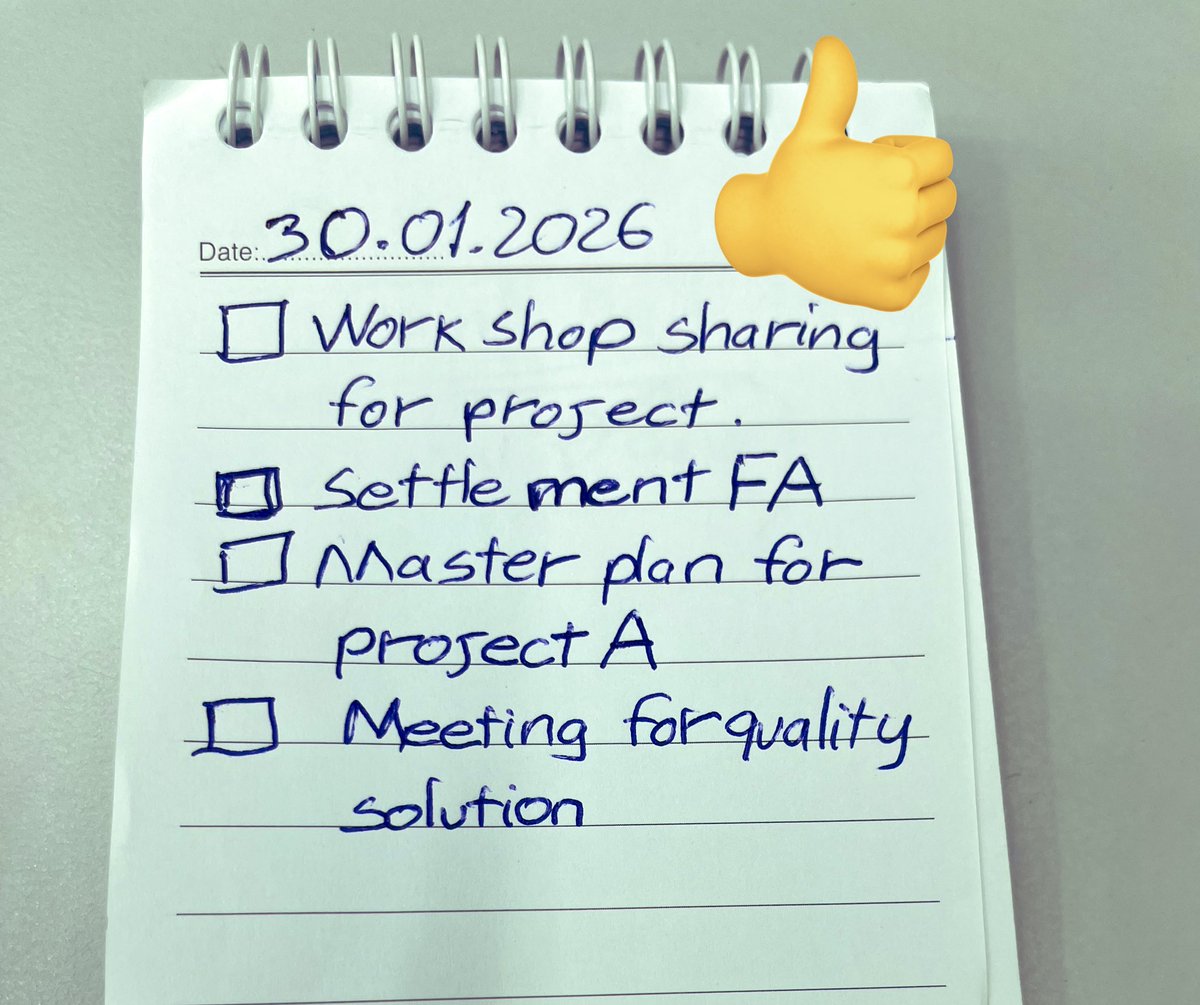 Date: 30.01.2026
Work shop sharing
for project.
Settlement FA
Master plan for
project A
Meeting for quality
solution